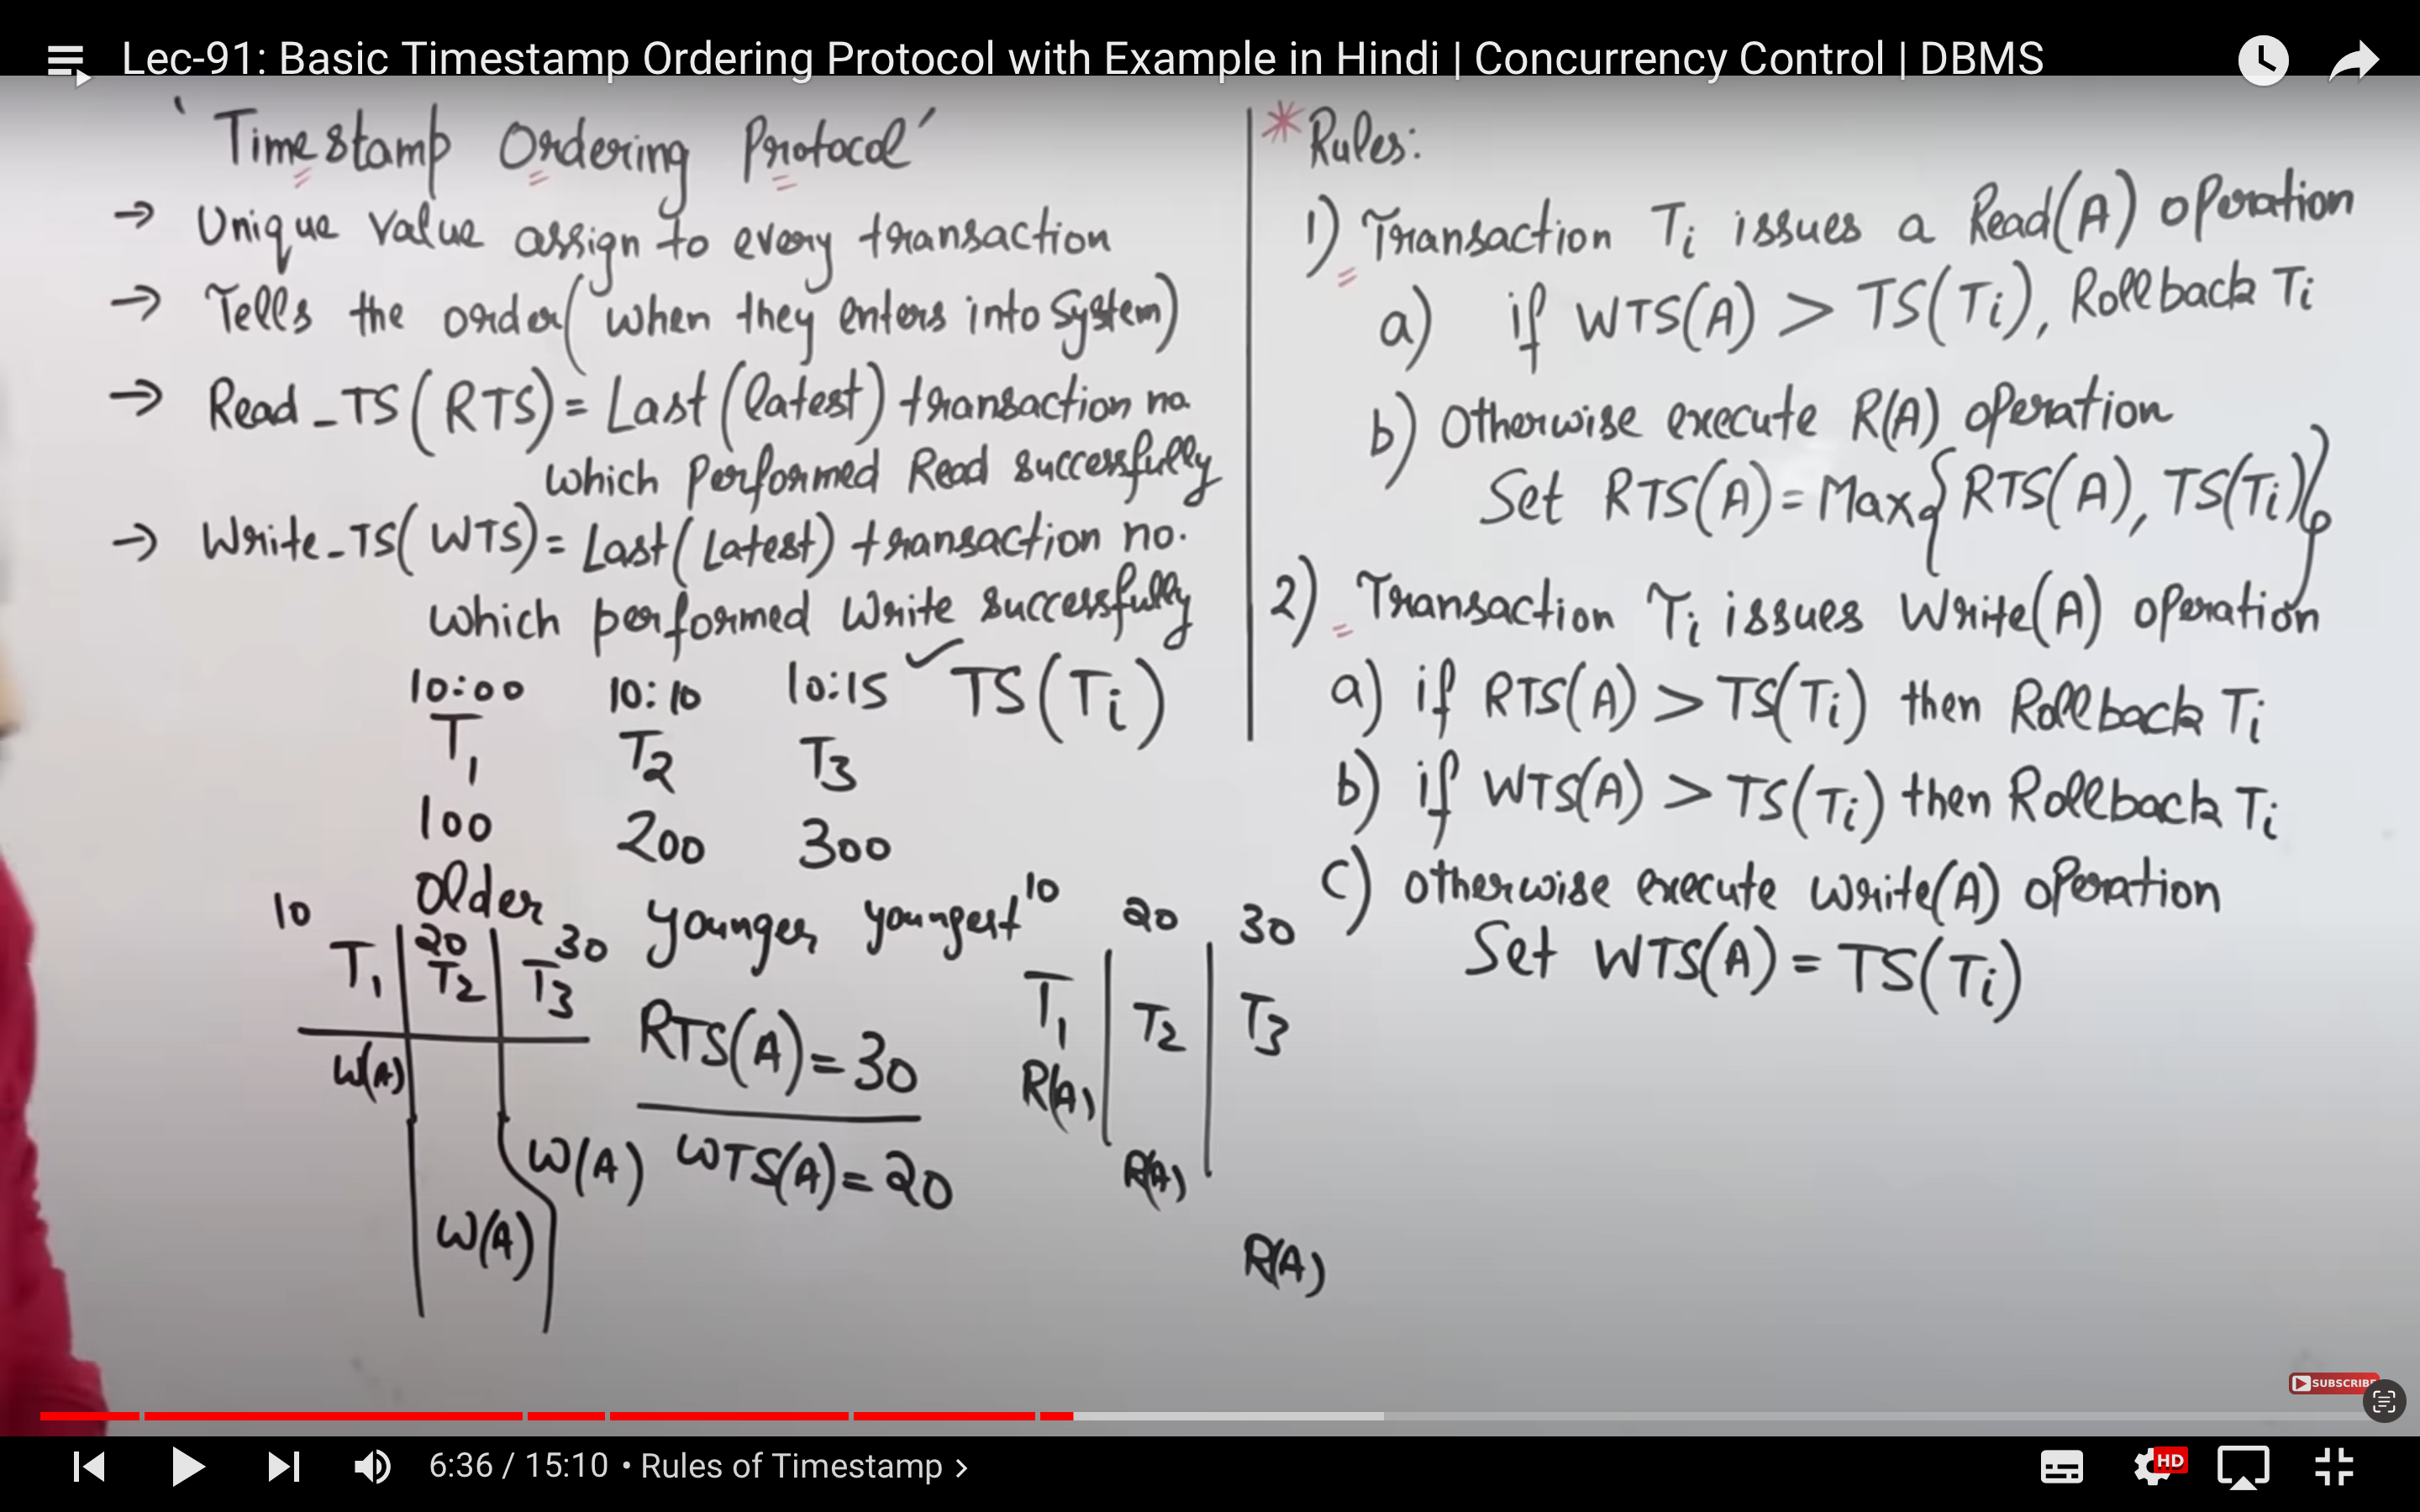 Lec-91: Basic Timestamp Ordering Protocol with Example in Hindi | Concurrency Control | DBMS
'Timestamp Ordering Protocol'
→ Unique value assign to every transaction
→ Tells the order (when they enters into system)
→ Read_TS(RTS) = Last (latest) transaction no.
which performed Read successfully
→ Write_TS(WTS) = Last (Latest) transaction no.
which performed Write successfully
10:00 10:10 10:15 ✓ TS(Ti)
T1 T2 T3
100 200 300
Older younger youngest
10 20 30
T1 T2 T3
W(A)
W(A)
W(A)
RTS(A) = 30
WTS(A) = 20
10 20 30
T1 T2 T3
R(A)
R(A)
R(A)
* Rules:
1) Transaction Ti issues a Read(A) operation
a) if WTS(A) > TS(Ti), Rollback Ti
b) Otherwise execute R(A) operation
Set RTS(A) = Max{RTS(A), TS(Ti)}
2) Transaction Ti issues Write(A) operation
a) if RTS(A) > TS(Ti) then Rollback Ti
b) if WTS(A) > TS(Ti) then Rollback Ti
c) otherwise execute write(A) operation
Set WTS(A) = TS(Ti)
SUBSCRIBE
6:36 / 15:10 • Rules of Timestamp >
HD